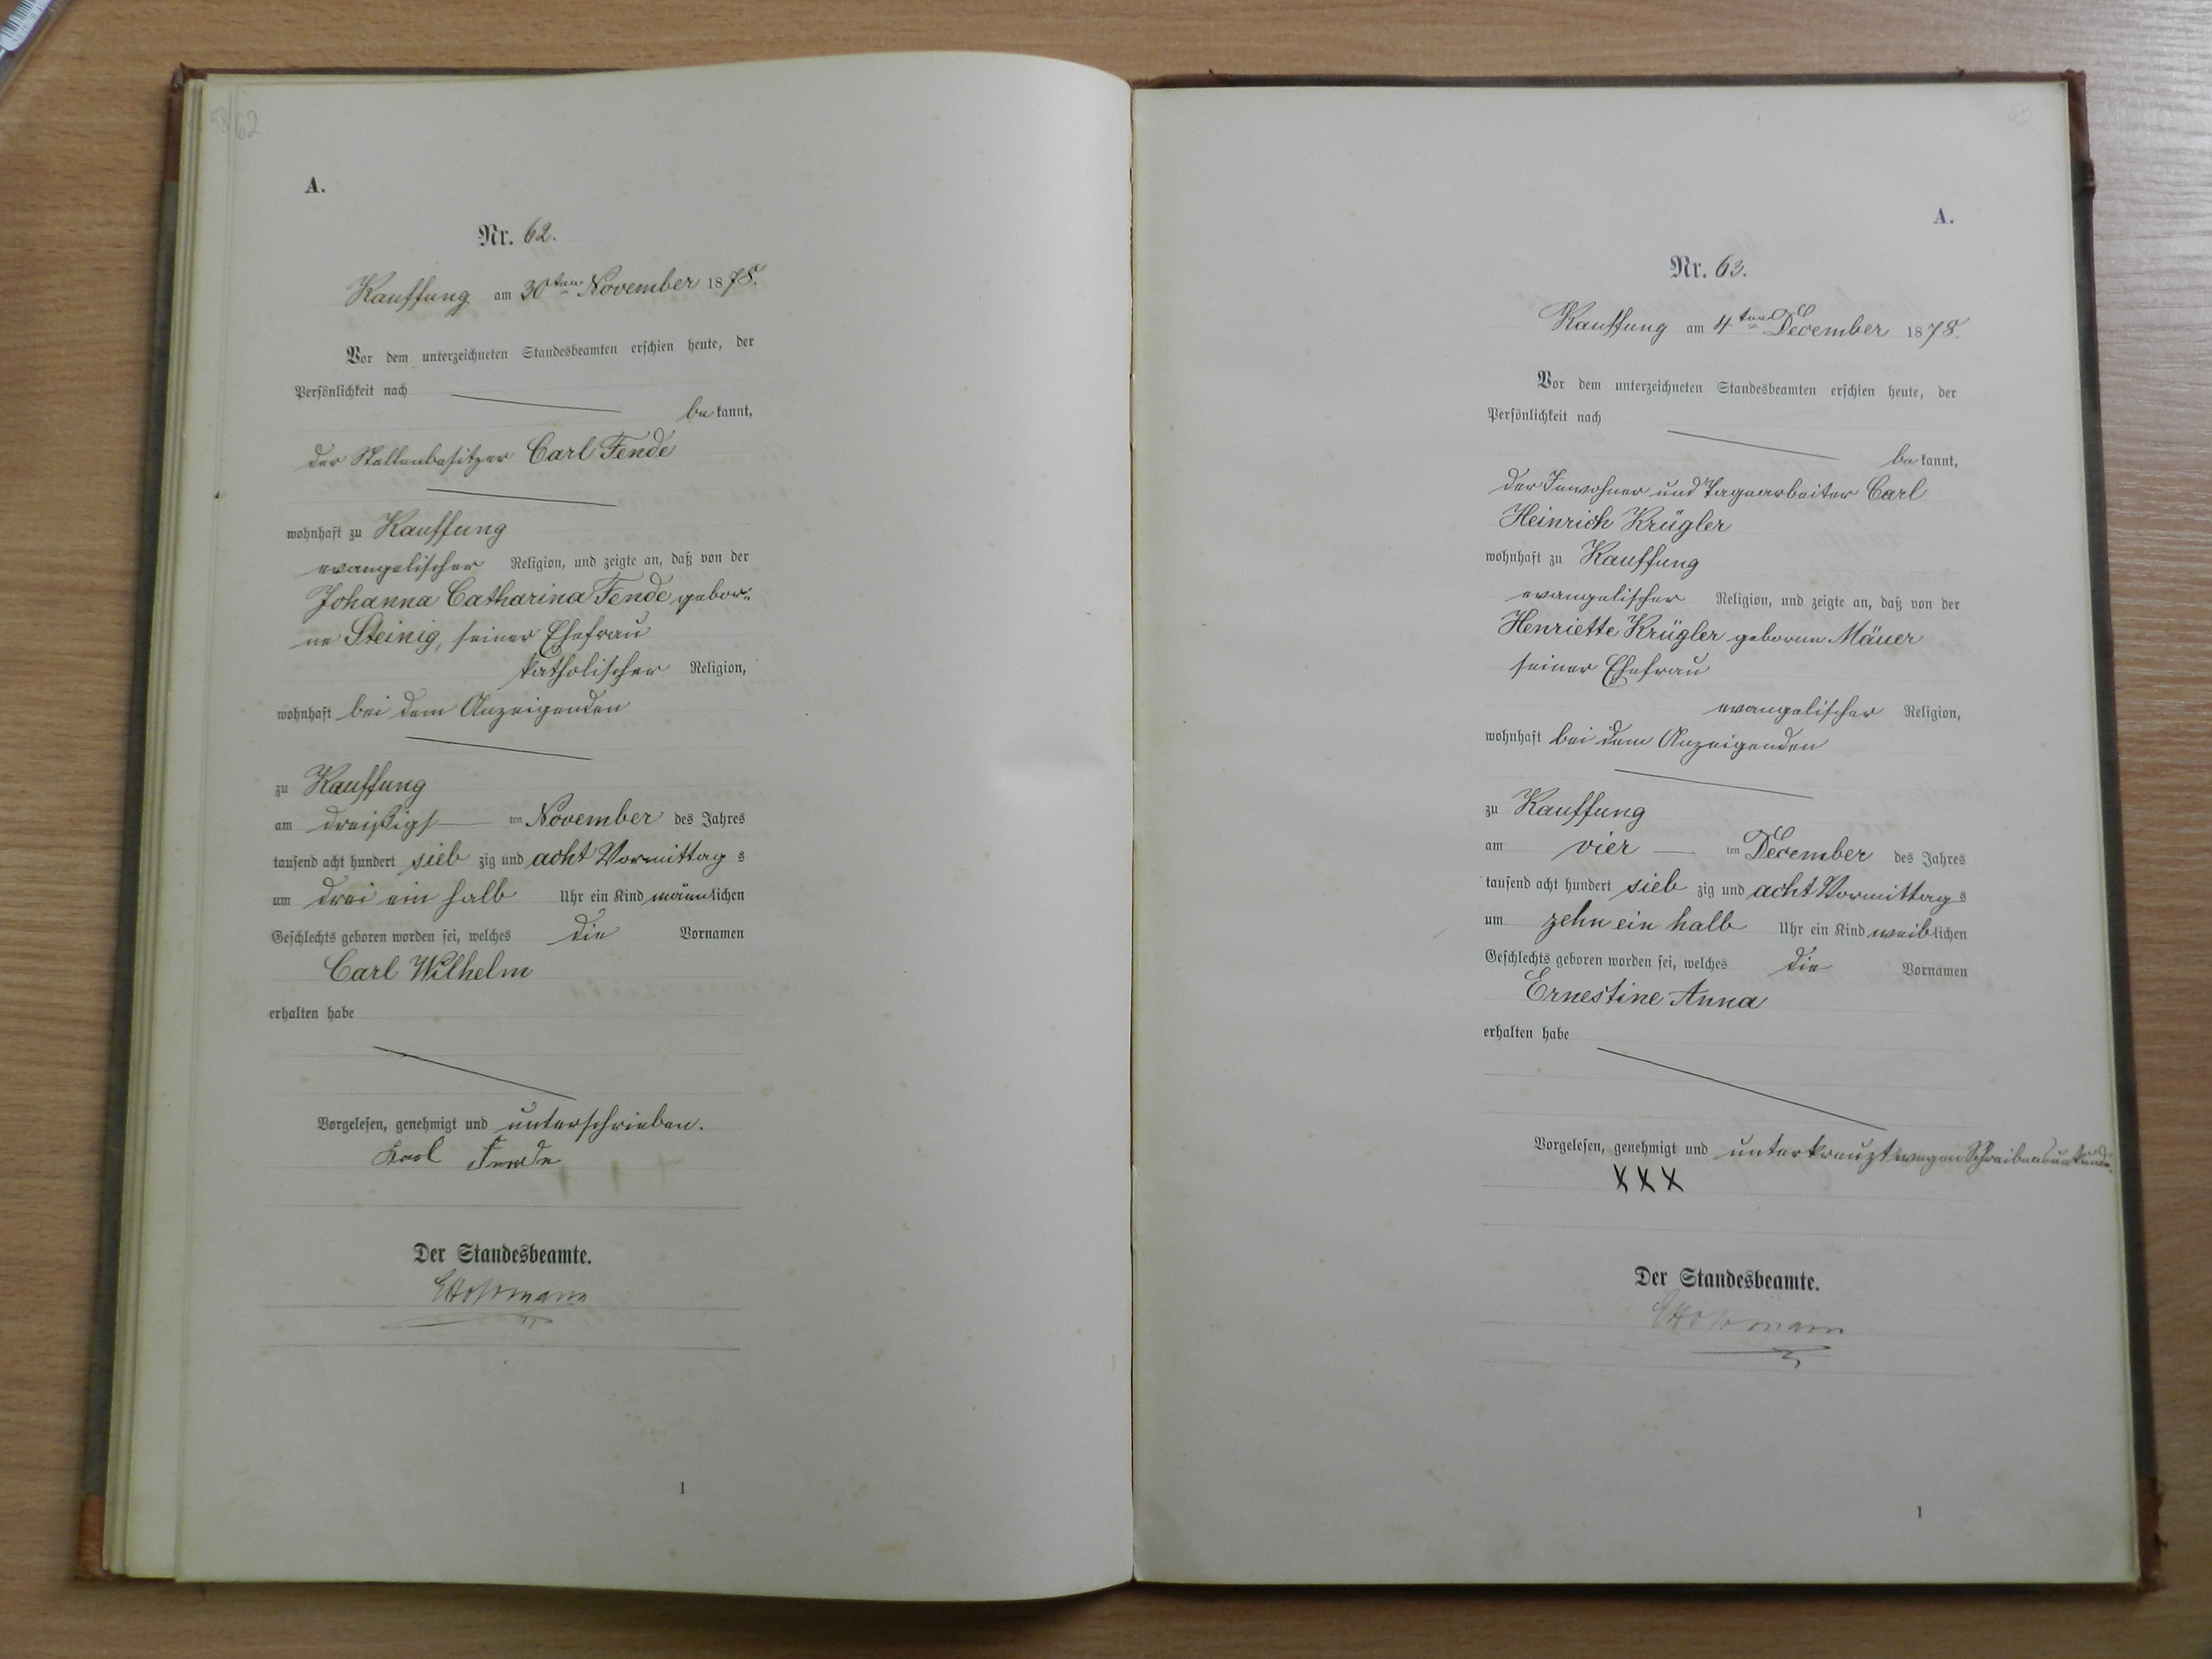 62
A.
Nr. 62.
Kauffung am 30ten November 1878.
Vor dem unterzeichneten Standesbeamten erschien heute, der
Persönlichkeit nach
be kannt,
der Stellenbesitzer Carl Fende
wohnhaft zu Kauffung
evangelischer Religion, und zeigte an, daß von der
Johanna Catharina Fende gebor-
ne Steinig, seiner Ehefrau
katholischer Religion,
wohnhaft bei dem Anzeigenden
zu Kauffung
am dreißigs ten November des Jahres
tausend acht hundert sieb zig und acht Vormittag s
um drei ein halb Uhr ein Kind männlichen
Geschlechts geboren worden sei, welches die Vornamen
Carl Wilhelm
erhalten habe
Vorgelesen, genehmigt und unterschrieben.
Karl Fende
Der Standesbeamte.
1
63
A.
Nr. 63.
Kauffung am 4ten December 1878.
Vor dem unterzeichneten Standesbeamten erschien heute, der
Persönlichkeit nach
be kannt,
der Inwohner und Tagearbeiter Carl
Heinrich Krügler
wohnhaft zu Kauffung
evangelischer Religion, und zeigte an, daß von der
Henriette Krügler geborene Mäuer
seiner Ehefrau
evangelischer Religion,
wohnhaft bei dem Anzeigenden
zu Kauffung
am vier ten December des Jahres
tausend acht hundert sieb zig und acht Vormittag s
um zehn ein halb Uhr ein Kind weiblichen
Geschlechts geboren worden sei, welches die Vornamen
Ernestine Anna
erhalten habe
Vorgelesen, genehmigt und unterkreuzt wegen Schreibensunkunde.
XXX
Der Standesbeamte.
1